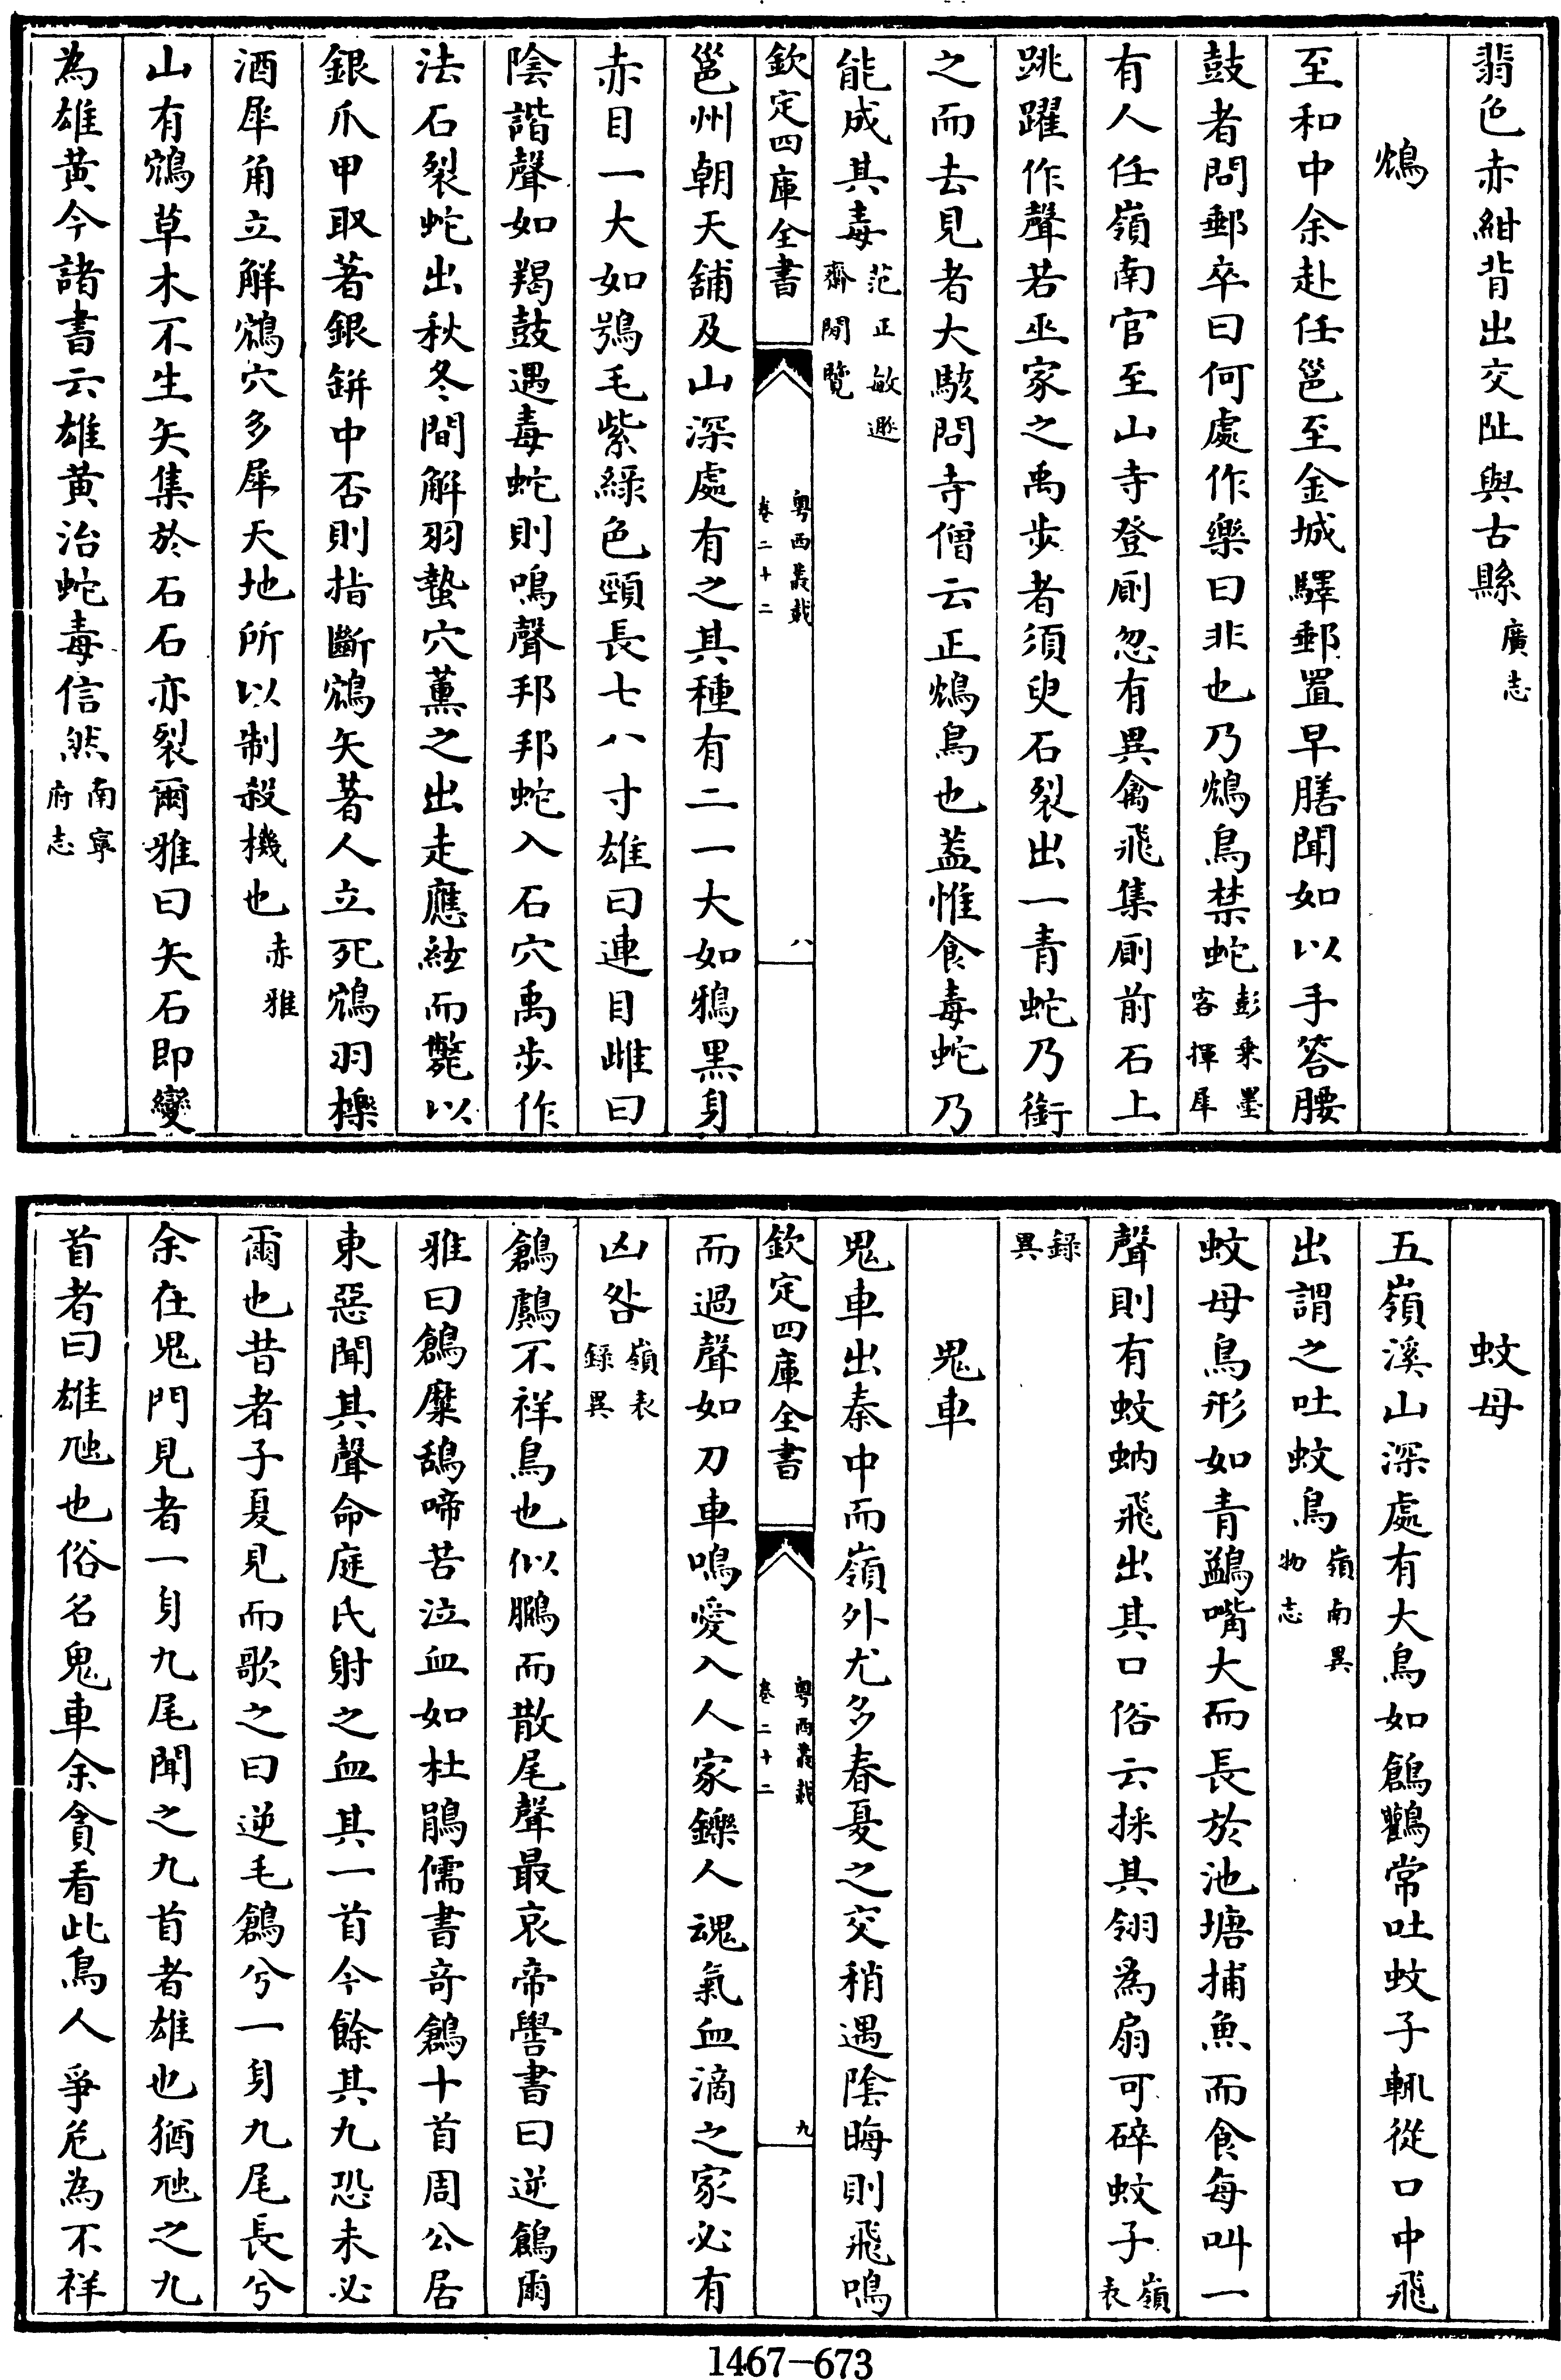 翡色赤紺背出交阯與古縣廣志
鴆
至和中余赴任邕至金城驛郵置早膳聞如以手答腰
鼓者問郵卒曰何處作樂曰非也乃鴆鳥禁蛇彭乘墨客揮犀
有人任嶺南官至山寺登厠忽有異禽飛集厠前石上
跳躍作聲若巫家之禹步者須臾石裂出一青蛇乃銜
之而去見者大駭問寺僧云正鴆鳥也蓋惟食毒蛇乃
能成其毒范正敏遯齋閒覽
欽定四庫全書
粵西叢載
卷二十二
八
邕州朝天舖及山深處有之其種有二一大如鴉黑身
赤目一大如鴞毛紫綠色頸長七八寸雄曰運目雌曰
陰諧聲如羯鼓遇毒蛇則鳴聲邦邦蛇入石穴禹步作
法石裂蛇出秋冬間解羽蟄穴薰之出走應絃而斃以
銀爪甲取著銀鉼中否則指斷鴆矢著人立死鴆羽擽
酒犀角立解鴆穴多犀天地所以制殺機也赤雅
山有鴆草木不生矢集於石石亦裂爾雅曰矢石即變
為雄黃今諸書云雄黃治蛇毒信然南寧府志
蚊母
五嶺溪山深處有大鳥如鶬鸛常吐蚊子輒從口中飛
出謂之吐蚊鳥嶺南異物志
蚊母鳥形如青鷁嘴大而長於池塘捕魚而食每叫一
聲則有蚊蚋飛出其口俗云採其翎爲扇可碎蚊子嶺表
錄異
鬼車
鬼車出秦中而嶺外尤多春夏之交稍遇陰晦則飛鳴
欽定四庫全書
粵西叢載
卷二十二
九
而過聲如刀車鳴愛入人家鑠人魂氣血滴之家必有
凶咎嶺表錄異
鶬鸆不祥鳥也似鵩而散尾聲最哀帝嚳書曰逆鶬爾
雅曰鶬麋鴰啼苦泣血如杜鵑儒書奇鶬十首周公居
東惡聞其聲命庭氏射之血其一首今餘其九恐未必
爾也昔者子夏見而歌之曰逆毛鶬兮一身九尾長兮
余在鬼門見者一身九尾聞之九首者雄也猶虺之九
首者曰雄虺也俗名鬼車余貪看此鳥人爭危為不祥
1467-673